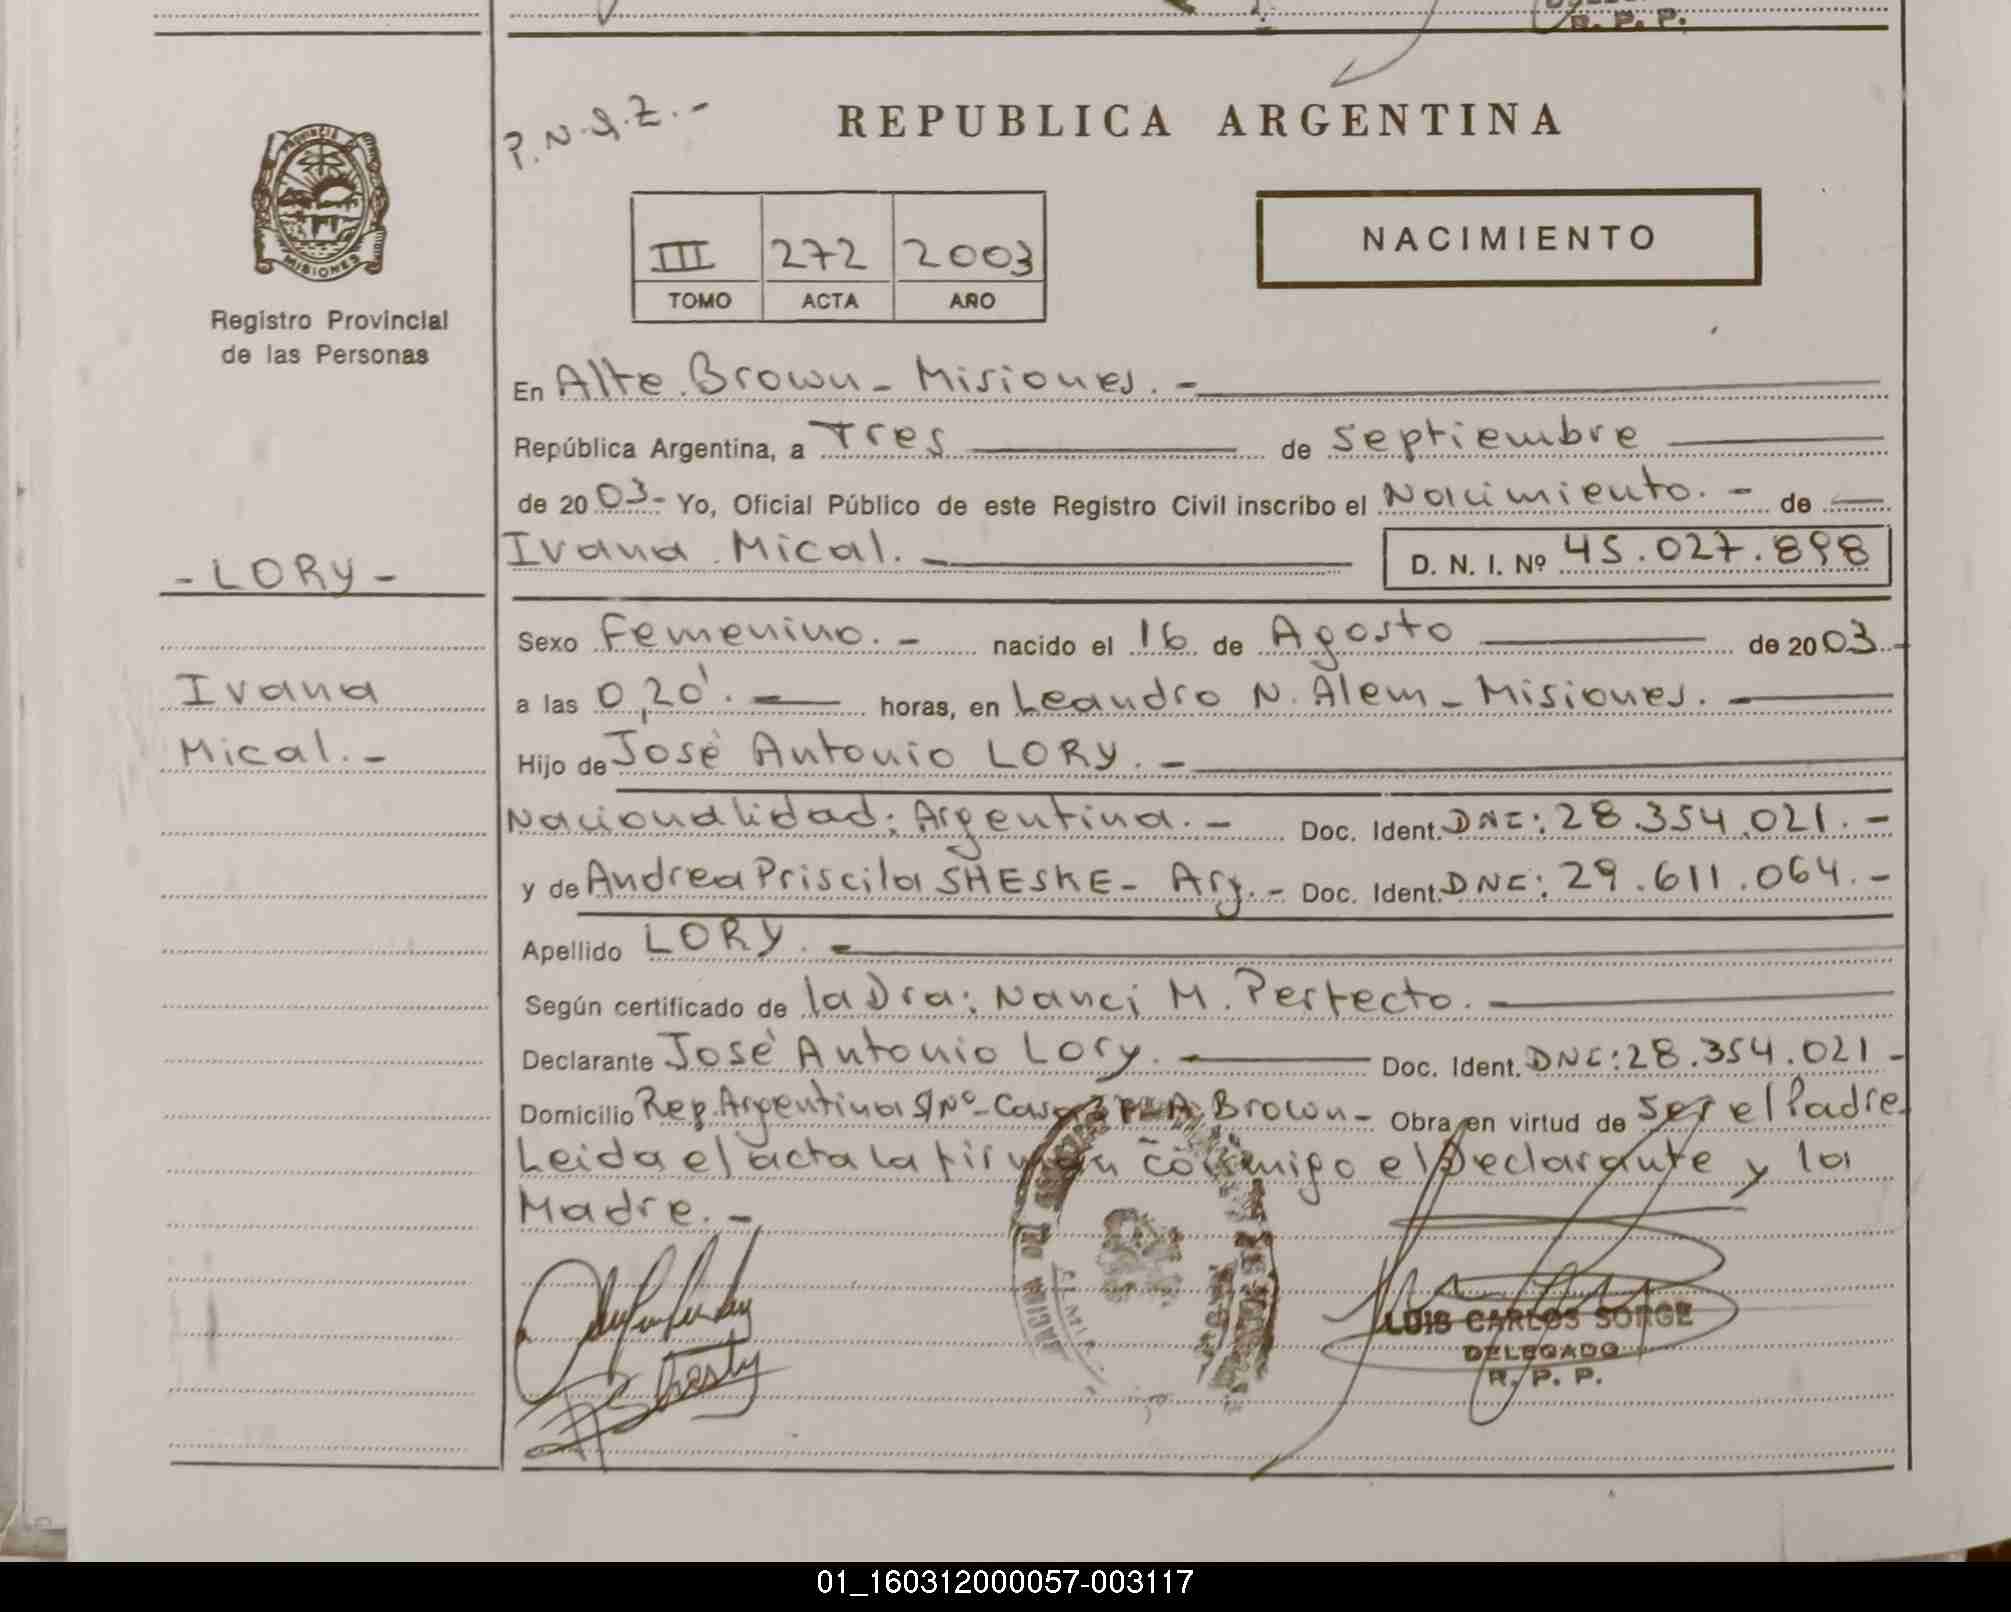 R. P. P.
P.N.Q.Z.-
REPUBLICA ARGENTINA
PROVINCIA
MISIONES
Registro Provincial
de las Personas
III 272 2003
TOMO ACTA AÑO
NACIMIENTO
En Alte. Brown - Misiones. -
República Argentina, a Tres de septiembre
de 2003- Yo, Oficial Público de este Registro Civil inscribo el Nacimiento. - de
Ivana Mical. - D. N. I. Nº 45.027.898
- LORY -
Sexo Femenino. - nacido el 16 de Agosto de 2003.-
Ivana
a las 0,20'. - horas, en Leandro N. Alem - Misiones. -
Mical. -
Hijo de José Antonio LORY. -
Nacionalidad: Argentina. - Doc. Ident. DNI: 28.354.021. -
y de Andrea Priscila SHESKE - Arg. - Doc. Ident. DNI: 29.611.064. -
Apellido LORY. -
Según certificado de la Dra: Nanci M. Perfecto. -
Declarante José Antonio Lory. - Doc. Ident. DNI: 28.354.021 -
Domicilio Rep. Argentina S/Nº - Casa A. Brown - Obra en virtud de ser el Padre.
Leida el acta la firman conmigo el Declarante y la
Madre. -
LUIS CARLOS SORGE
DELEGADO
R. P. P.
01_160312000057-003117